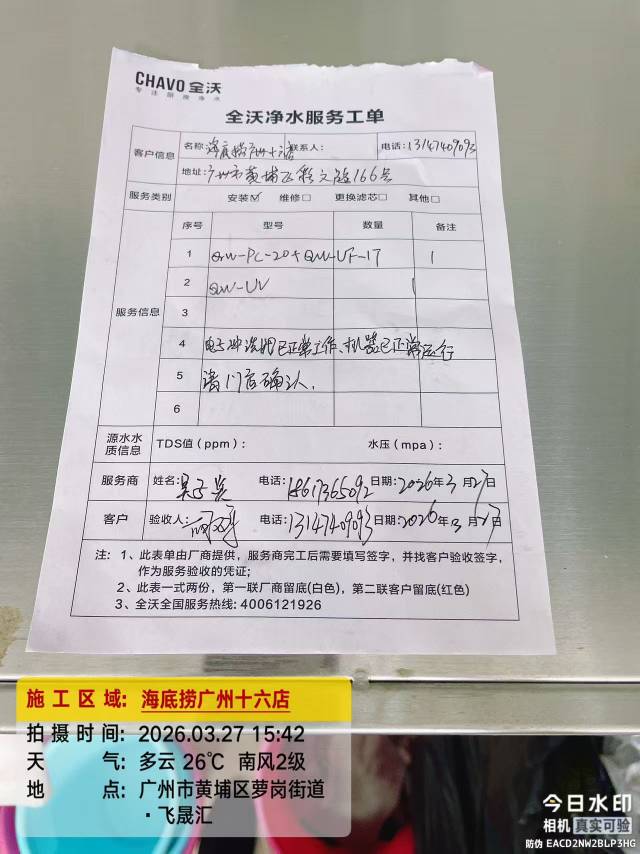 CHAVO 全沃
专注厨房净水
全沃净水服务工单
客户信息
名称: 海底捞广州十六店 联系人: 电话: 13147409093
地址: 广州市黄埔区 路166号
服务类别 安装☑ 维修□ 更换滤芯□ 其他□
服务信息
序号 型号 数量 备注
1 QW-PC-20+QW-UF-17 1
2 QW-UV 1
3
4 电子冲洗阀已正常工作、机器已正常运行
5 请门店确认.
6
源水水质信息 TDS值(ppm): 水压(mpa):
服务商 姓名: 电话: 18617365092 日期: 2026年3月27日
客户 验收人: 电话: 13147409093 日期: 2026年3月27日
注: 1、此表单由厂商提供，服务商完工后需要填写签字，并找客户验收签字，
作为服务验收的凭证;
2、此表一式两份，第一联厂商留底(白色)，第二联客户留底(红色)
3、全沃全国服务热线: 4006121926
施工区域: 海底捞广州十六店
拍摄时间: 2026.03.27 15:42
天气: 多云 26℃ 南风2级
地点: 广州市黄埔区萝岗街道
·飞晟汇
今日水印
相机 真实可验
防伪 EACD2NW2BLP3HG